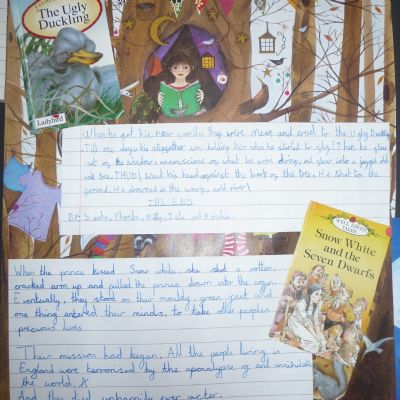 The Ugly
Duckling
Ladybird
When he got his new family they were mean and cruel to the Ugly Duckling
Till one day his stepfather was holding him when he started to fly! Then he flew
out of the window unconscious of what he was doing, and flew into a jagged old
oak tree. THUD! went his head against the bark of the tree. He shot to the
ground. He drowned in the wavy, cold river!
THE END
By: Phoebe, Milly,
WELL LOVED
TALES
Snow White
and the
Seven Dwarfs
When the prince kissed Snow white, she shot a rotten,
cracked arm up and pulled the prince down into the
Eventually, they stood on their mouldy, green feet and
one thing entered their minds, to take other peoples
precious lives.
Their mission had begun. All the people living in
England were terrorised by the apocalypse of
the world.
And they died unhappily ever after.